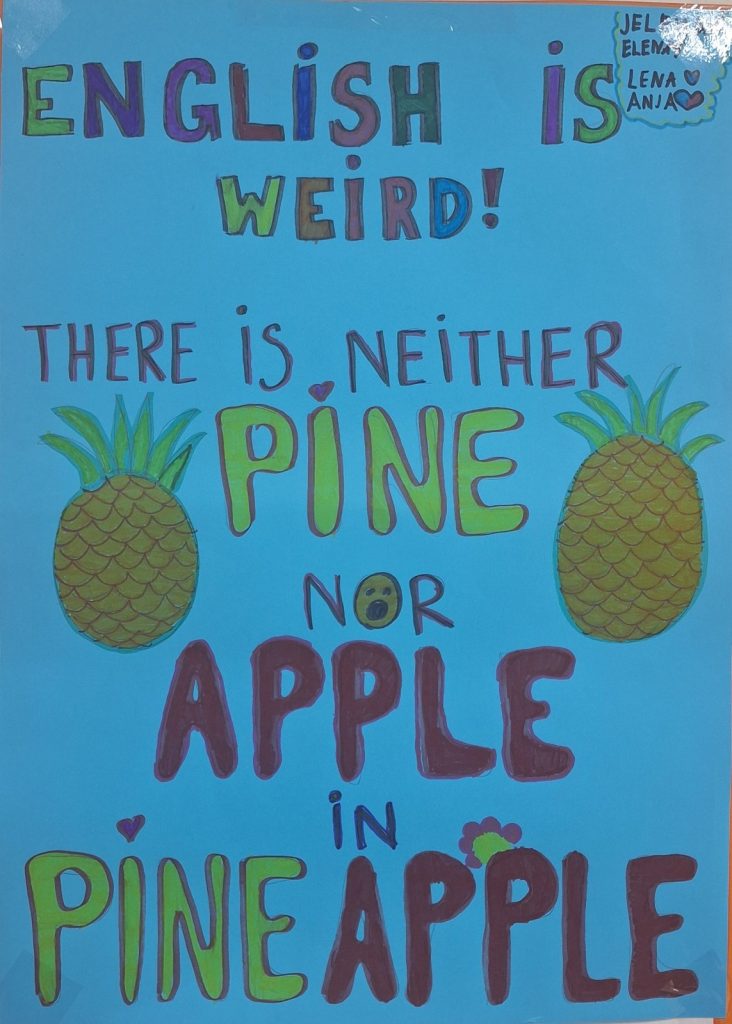 ENGLISH IS
WEIRD!
ELENA
LENA
ANJA
THERE IS NEITHER
PINE
NOR
APPLE
IN
PINEAPPLE